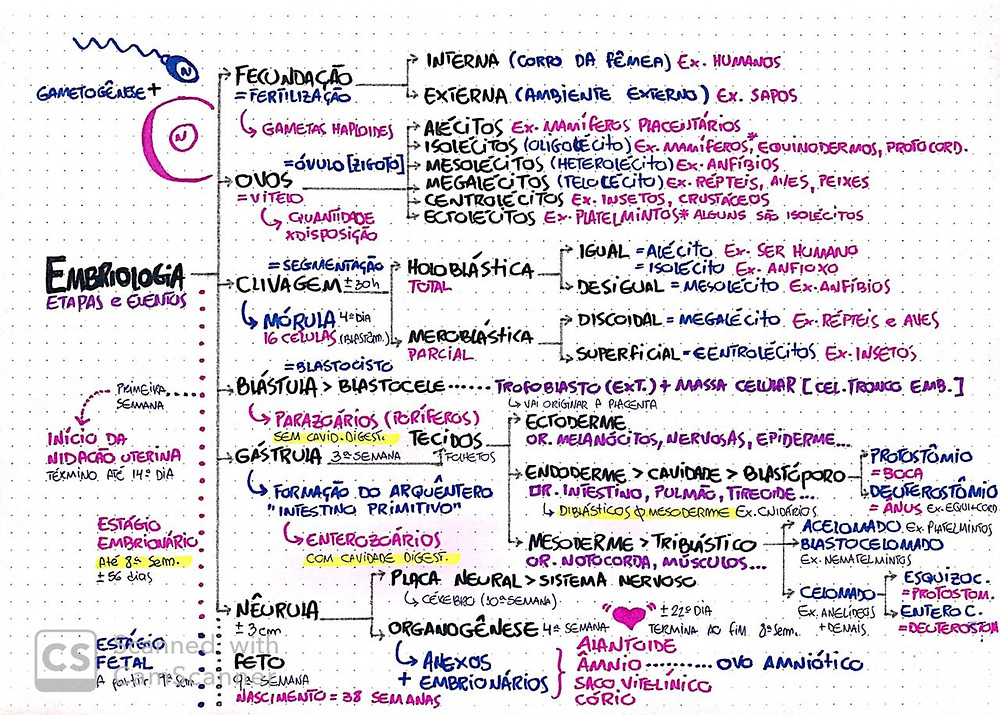 GAMETOGÊNESE +
N
N
EMBRIOLOGIA
ETAPAS e EVENTOS
FECUNDAÇÃO
= FERTILIZAÇÃO
GAMETAS HAPLOIDES
INTERNA (CORPO DA FÊMEA) Ex. HUMANOS
EXTERNA (AMBIENTE EXTERNO) Ex. SAPOS
= ÓVULO [ZIGOTO]
OVOS
= VITELO
QUANTIDADE
x DISPOSIÇÃO
ALÉCITOS Ex. MAMÍFEROS PLACENTÁRIOS
ISOLÉCITOS (OLIGOLÉCITO) Ex. MAMÍFEROS,* EQUINODERMOS, PROTOCORD.
MESOLÉCITOS (HETEROLÉCITO) Ex. ANFÍBIOS
MEGALÉCITOS (TELOLÉCITO) Ex. RÉPTEIS, AVES, PEIXES
CENTROLÉCITOS Ex. INSETOS, CRUSTÁCEOS
ECTOLÉCITOS Ex. PLATELMINTOS * ALGUNS SÃO ISOLÉCITOS
= SEGMENTAÇÃO
CLIVAGEM ± 30h
MÓRULA 4º DIA
16 CÉLULAS (BLASTÔM.)
HOLOBLÁSTICA
TOTAL
IGUAL = ALÉCITO Ex. SER HUMANO
= ISOLÉCITO Ex. ANFIOXO
DESIGUAL = MESOLÉCITO Ex. ANFÍBIOS
MEROBLÁSTICA
PARCIAL
DISCOIDAL = MEGALÉCITO Ex. RÉPTEIS e AVES
SUPERFICIAL = CENTROLÉCITOS Ex. INSETOS
= BLASTOCISTO
BLÁSTULA > BLASTOCELE ...... TROFOBLASTO (EXT.) + MASSA CELULAR [CEL. TRONCO EMB.]
VAI ORIGINAR A PLACENTA
PRIMEIRA
SEMANA
INÍCIO DA
NIDAÇÃO UTERINA
TÉRMINO ATÉ 14º DIA
PARAZOÁRIOS (PORÍFEROS)
SEM CAVID. DIGEST.
GÁSTRULA 3ª SEMANA
TECIDOS
FOLHETOS
FORMAÇÃO DO ARQUÊNTERO
"INTESTINO PRIMITIVO"
ENTEROZOÁRIOS
COM CAVIDADE DIGEST.
ECTODERME
OR. MELANÓCITOS, NERVOSAS, EPIDERME...
ENDODERME > CAVIDADE > BLASTÓPORO
OR. INTESTINO, PULMÃO, TIREOIDE...
DIBLÁSTICOS MESODERME Ex. CNIDÁRIOS
PROTOSTÔMIO
= BOCA
DEUTEROSTÔMIO
= ÂNUS Ex. EQUI+CORD.
MESODERME > TRIBLÁSTICO
OR. NOTOCORDA, MÚSCULOS...
ACELOMADO Ex. PLATELMINTOS
BLASTOCELOMADO
Ex. NEMATELMINTOS
CELOMADO
Ex. ANELÍDEOS
+ DEMAIS.
ESQUIZOC.
= PROTOSTOM.
ENTEROC.
= DEUTEROSTOM
ESTÁGIO
EMBRIONÁRIO
ATÉ 8ª SEM.
± 56 dias
NÊURULA
± 3cm
PLACA NEURAL > SISTEMA NERVOSO
CÉREBRO (10ª SEMANA)
ORGANOGÊNESE 4ª SEMANA
± 22º DIA
TERMINA AO FIM 8ª SEM.
ANEXOS
+ EMBRIONÁRIOS
ALANTOIDE
ÂMNIO ......... OVO AMNIÓTICO
SACO VITELÍNICO
CÓRIO
ESTÁGIO
FETAL
A partir 9ª Sem.
FETO
9ª SEMANA
NASCIMENTO = 38 SEMANAS
CS Scanned with
CamScanner